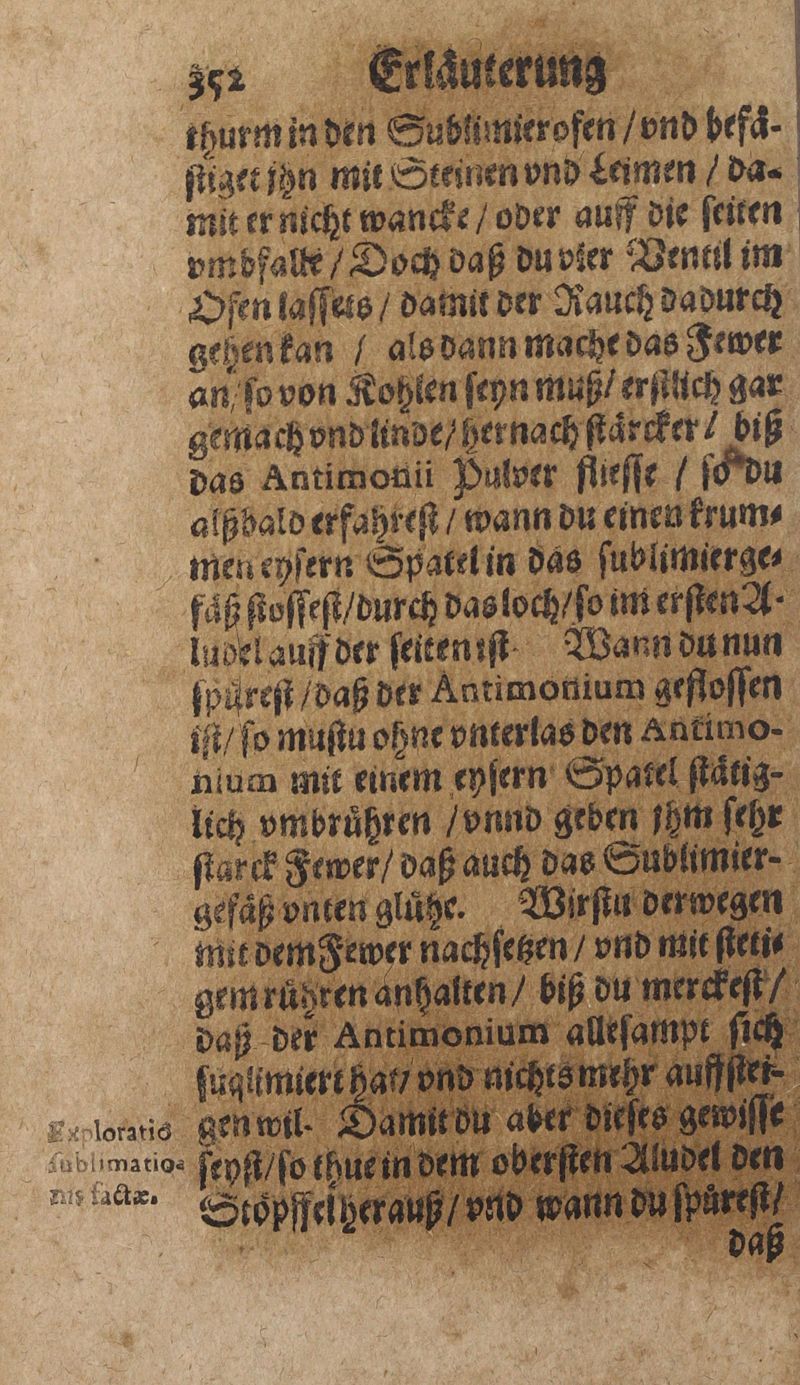 352 Erlaͤuterung
thurm in den Sublimierofen / vnd befaͤ-
ſtiget jhn mit Steinen vnd Leimen / da-
mit er nicht wancke / oder auff die ſeiten
vmbfalle / Doch daß du vier Ventil im
Ofen laſſets / damit der Rauch dadurch
gehen kan / als dann mache das Fewer
an / ſo von Kohlen ſeyn muß / erſtlich gar
gemach vnd linde / hernach ſtaͤrcker / biß
das Antimonii Pulver flieſſe / ſo du
alßbald erfahreſt / wann du einen krum-
men eyſern Spatel in das ſublimierge-
faͤß ſtoſſeſt / durch das loch / ſo im erſten A-
ludel auff der ſeiten iſt. Wann du nun
ſpuͤreſt / daß der Antimonium gefloſſen
iſt / ſo muſtu ohne vnterlas den Antimo-
nium mit einem eyſern Spatel ſtaͤtig-
lich vmbruͤhren / vnnd geben jhm ſehr
ſtarck Fewer / daß auch das Sublimier-
gefaͤß vnten gluͤhe. Wirſtu derwegen
mit dem Fewer nachſetzen / vnd mit ſteti-
gem ruͤhren anhalten / biß du merckeſt /
daß der Antimonium alleſampt ſich
ſuglimiert hat / vnd nichts mehr auffſtei-
gen wil. Damit du aber dieſes gewiſſe
ſeyſt / ſo thue in dem oberſten Aludel den
Stoͤpffel herauß / vnd wann du ſpuͤreſt /
daß
Exploratio
ſublimatio-
nis factæ.